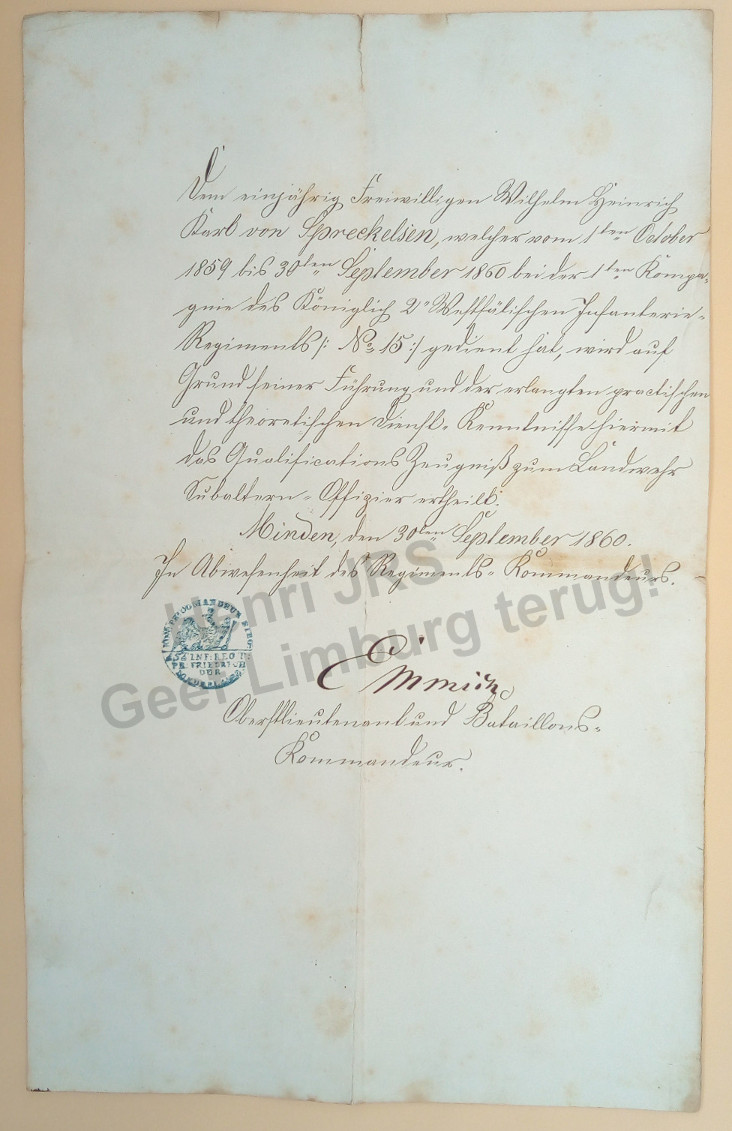 Dem einjährig Freiwilligen Wilhelm Heinrich
Karl von Spreckelsen, welcher vom 1ten October
1859 bis 30ten September 1860 bei der 1ten Kompa-
gnie des Königlich 2n Westfälischen Infanterie-
Regiments /: No 15 :/ gedient hat, wird auf
Grund seiner Führung und der erlangten practischen
und theoretischen Dienst-Kenntnisse hiermit
das Qualifications Zeugniß zum Landwehr
Subaltern-Offizier ertheilt.
Minden, den 30ten September 1860.
In Abwesenheit des Regiments-Kommandeurs.
Henri JRS
Geef Limburg terug!
INF: REG
PR: FRIEDRICH
DER
Oberstlieutenant und Bataillons-
Kommandeur.